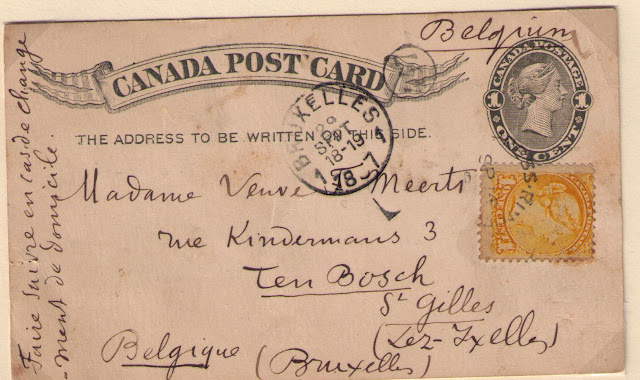 Belgium
CANADA POST CARD
CANADA POSTAGE
1 1
ONE CENT
THE ADDRESS TO BE WRITTEN ON THIS SIDE.
BRUXELLES
29
SEPT
18-19
1897
Madame Veuve Meerts
rue Kindermans 3
Ten Bosch
St Gilles
(Lez-Ixelles)
Belgique (Bruxelles)
Faire suivre en cas de change
-ment de domicile.